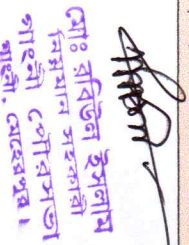 মোঃ রবিউল ইসলাম
নিম্নমান সহকারী
গাংনী পৌরসভা
গাংনী, মেহেরপুর।